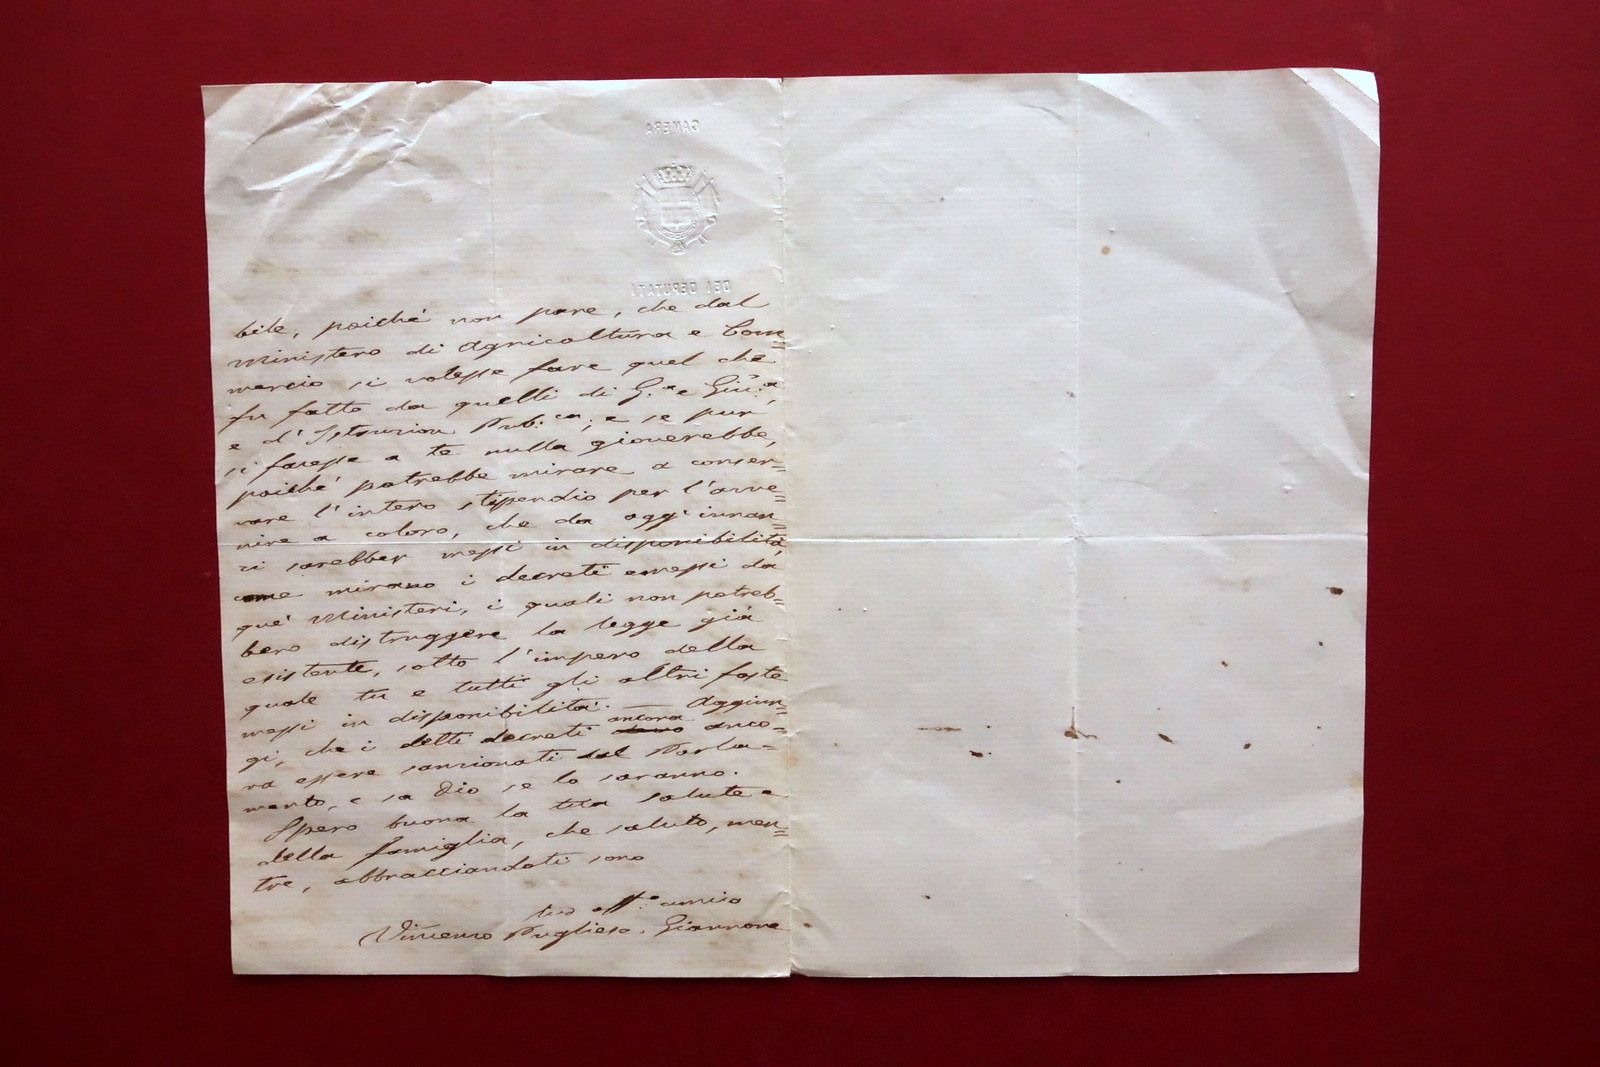 CAMERA
DEI DEPUTATI
bile, poiché non pare, che dal
Ministero di Agricoltura e Com=
mercio si volesse fare quel che
fu fatto da quelli di G.a e Giu.a,
e d'Istruzion Pub.ca; e se pur
si facesse a te nulla gioverebbe,
poiché potrebbe mirare a conser=
vare l'intero stipendio per l'avve=
nire a coloro, che da oggi innan=
zi sarebber messi in disponibilità,
come mirano i decreti emessi da
que' Ministeri, i quali non potreb=
bero distruggere la legge già
esistente, sotto l'impero della
quale tu e tutti gli altri foste
messi in disponibilità. — Aggiun=
gi, che i detti decreti ancora anco=
ra essere sanzionati dal Parla=
mento, e sa Dio se lo saranno.
Spero buona la tua salute e
della famiglia, che saluto, men=
tre, abbracciandoti sono
tuo aff.o amico
Vincenzo Pugliese Giannone